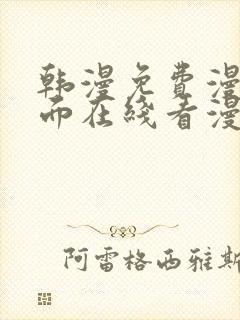 韩漫免費漫
而在綫看漫
阿雷格西雅斯